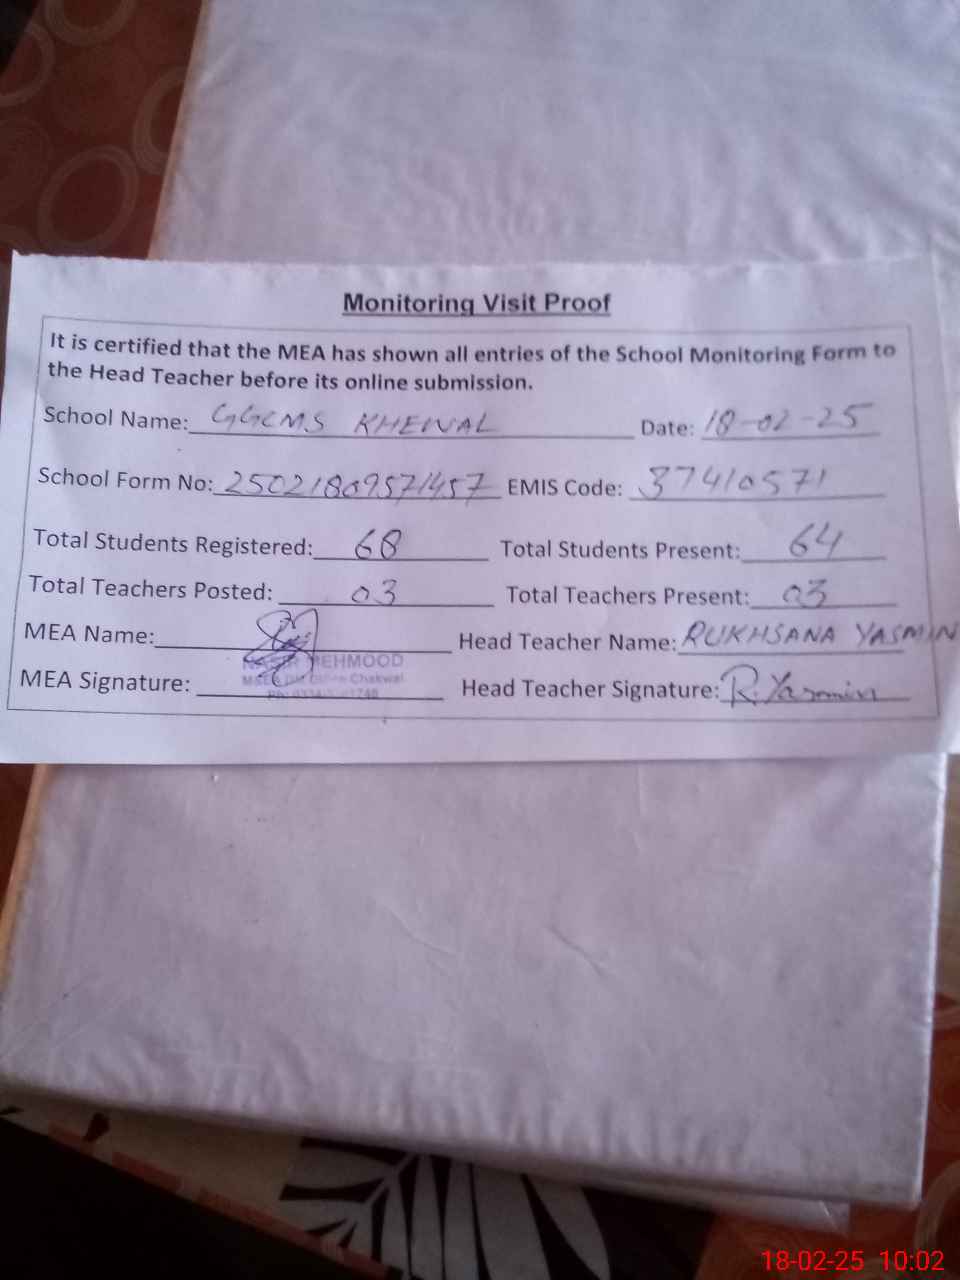 Monitoring Visit Proof
It is certified that the MEA has shown all entries of the School Monitoring Form to
the Head Teacher before its online submission.
School Name: GGCMS KHEWAL Date: 18-02-25
School Form No: 25021809571457 EMIS Code: 37410571
Total Students Registered: 68 Total Students Present: 64
Total Teachers Posted: 03 Total Teachers Present: 03
MEA Name: Head Teacher Name: RUKHSANA YASMIN
NASIR MEHMOOD
Chakwal
MEA Signature: Head Teacher Signature: R. Yasmin
18-02-25 10:02